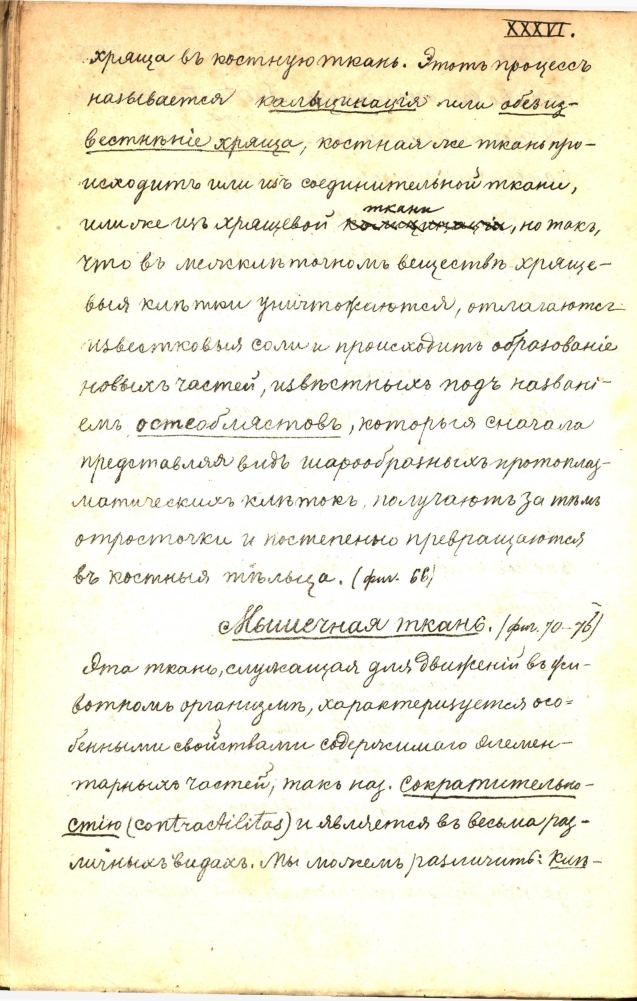 XXXVI.
хряща въ костную ткань. Этотъ процессъ
называется кальцинація или обезиз-
вестнѣніе хряща, костная же ткань про-
исходитъ или изъ соединительной ткани,
ткани
или же изъ хрящевой кальцинація, но такъ,
что въ межклѣточномъ веществѣ хряще-
выя клѣтки уничтожаются, отлагаются
известковыя соли и происходитъ образованіе
новыхъ частей, извѣстныхъ подъ названі-
емъ остеобластовъ, которыя сначала
представляя видъ шарообразныхъ протоплаз-
матическихъ клѣтокъ, получаютъ за тѣмъ
отросточки и постепенно превращаются
въ костныя тѣльца. (фиг. 66)
Мышечная ткань. (фиг. 70-76)
Эта ткань, служащая для движеній въ жи-
вотномъ организмѣ, характеризуется осо-
бенными свойствами содержимаго элемен-
тарныхъ частей, такъ наз. сократительно-
стію (contractilitas) и является въ весьма раз-
личныхъ видахъ. Мы можемъ различить: клѣ-